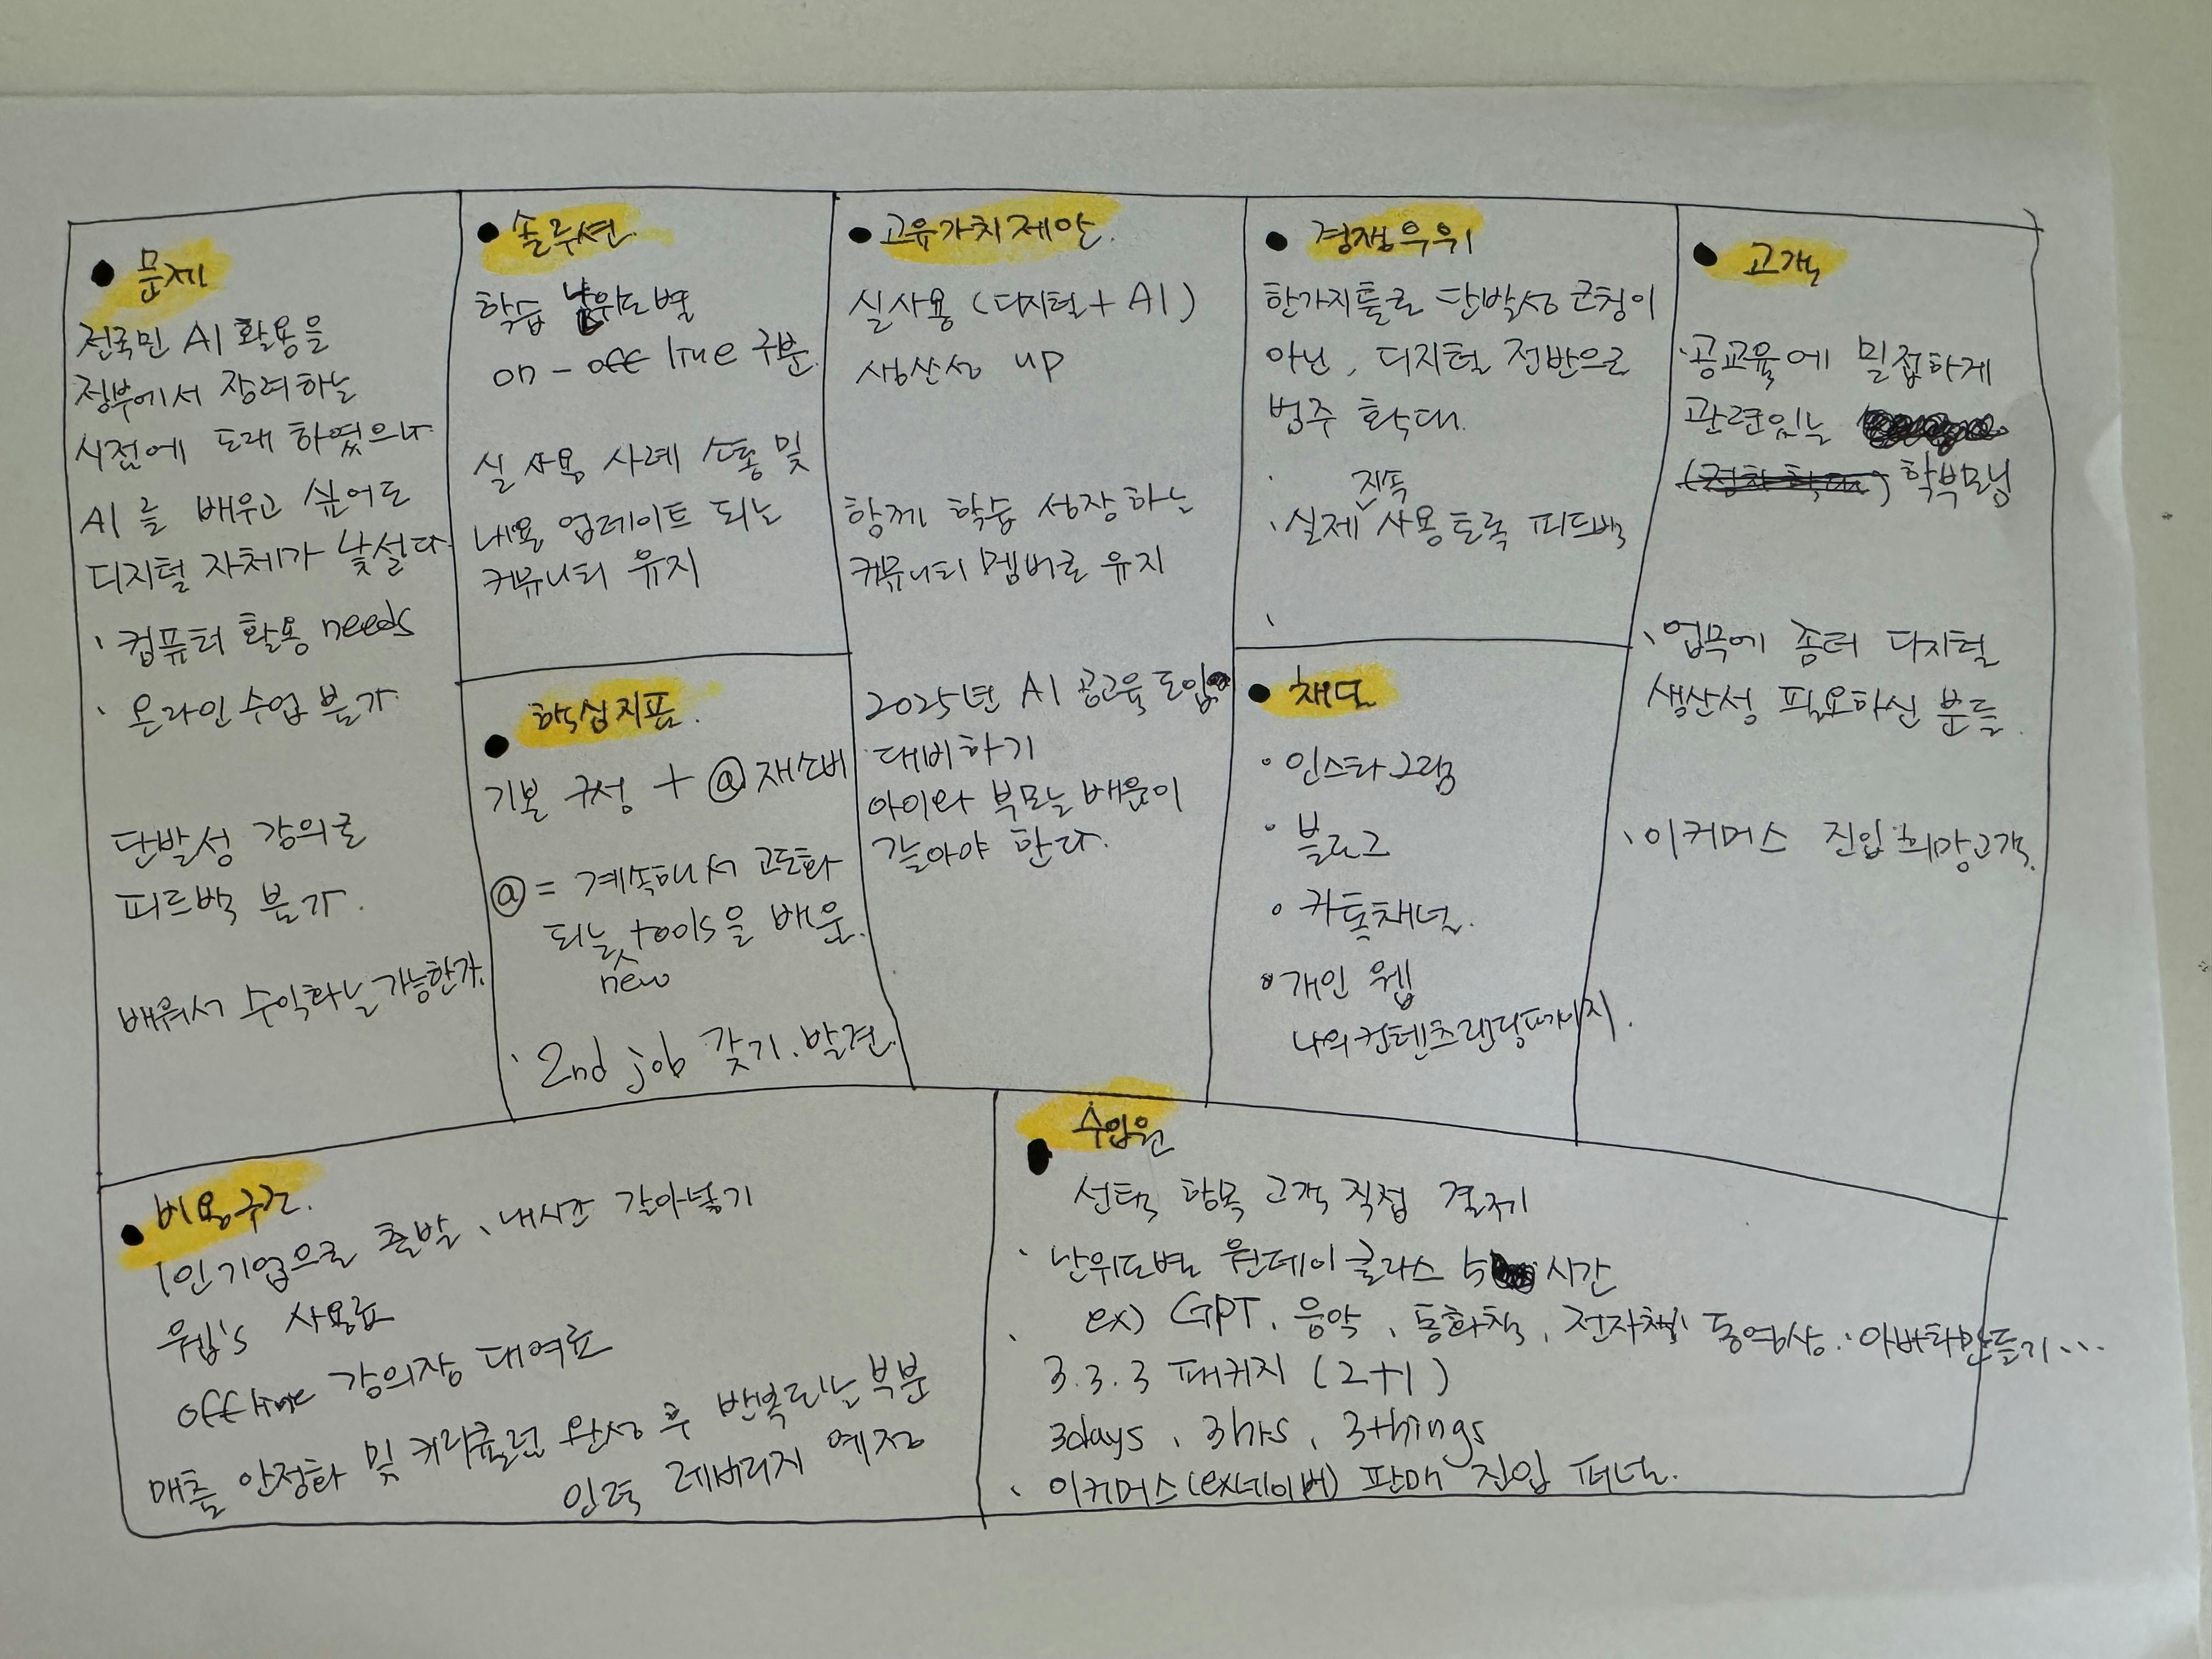 문제
전국민 AI 활용을
정부에서 장려하는
시점에 도래 하였으나
AI를 배우고 싶어도
디지털 자체가 낯설다
、컴퓨터 활용 needs
、온라인 수업 불가
단발성 강의로
피드백 불가.
배워서 수익화는 가능한가.
솔루션.
학습 난위도별
on-off line 구분.
실 사용 사례 소통 및
내용 업데이트 되는
커뮤니티 유지
핵심지표.
기본 구성 + @ 재소비
@ = 계속해서 고도화
되는 new tools을 배움.
、2nd job 갖기.발견.
고유가치제안.
실사용 (디지털+AI)
생산성 up
함께 학습 성장하는
커뮤니티 멤버로 유지
2025년 AI 공교육 도입
대비하기
아이와 부모는 배움이
같아야 한다.
경쟁우위
한가지툴로 단발성 코칭이
아닌, 디지털 전반으로
범주 확대.
、실제 진득 사용토록 피드백
채널
• 인스타그램
• 블로그
• 카톡채널.
• 개인 웹
나의컨텐츠랜딩페이지.
고객
·공교육에 밀접하게
관련있는
학부모님
、업무에 종터 디지털
생산성 필요하신 분들.
、이커머스 진입희망고객.
비용구조.
1인기업으로 출발、내시간 갈아넣기
웹's 사용료
offline 강의장 대여료
매출 안정화 및 커리큘럼 완성 후 반복되는 부분
인력 레버리지 예정
수입원
선택 항목 고객 직접 결제
、난위도별 원데이클라스 5시간
ex) GPT, 음악, 동화책, 전자책, 동영상, 아바타만들기...
、3.3.3 패키지 (2+1)
3days, 3hrs, 3things
、이커머스(ex네이버) 판매 진입 퍼널.